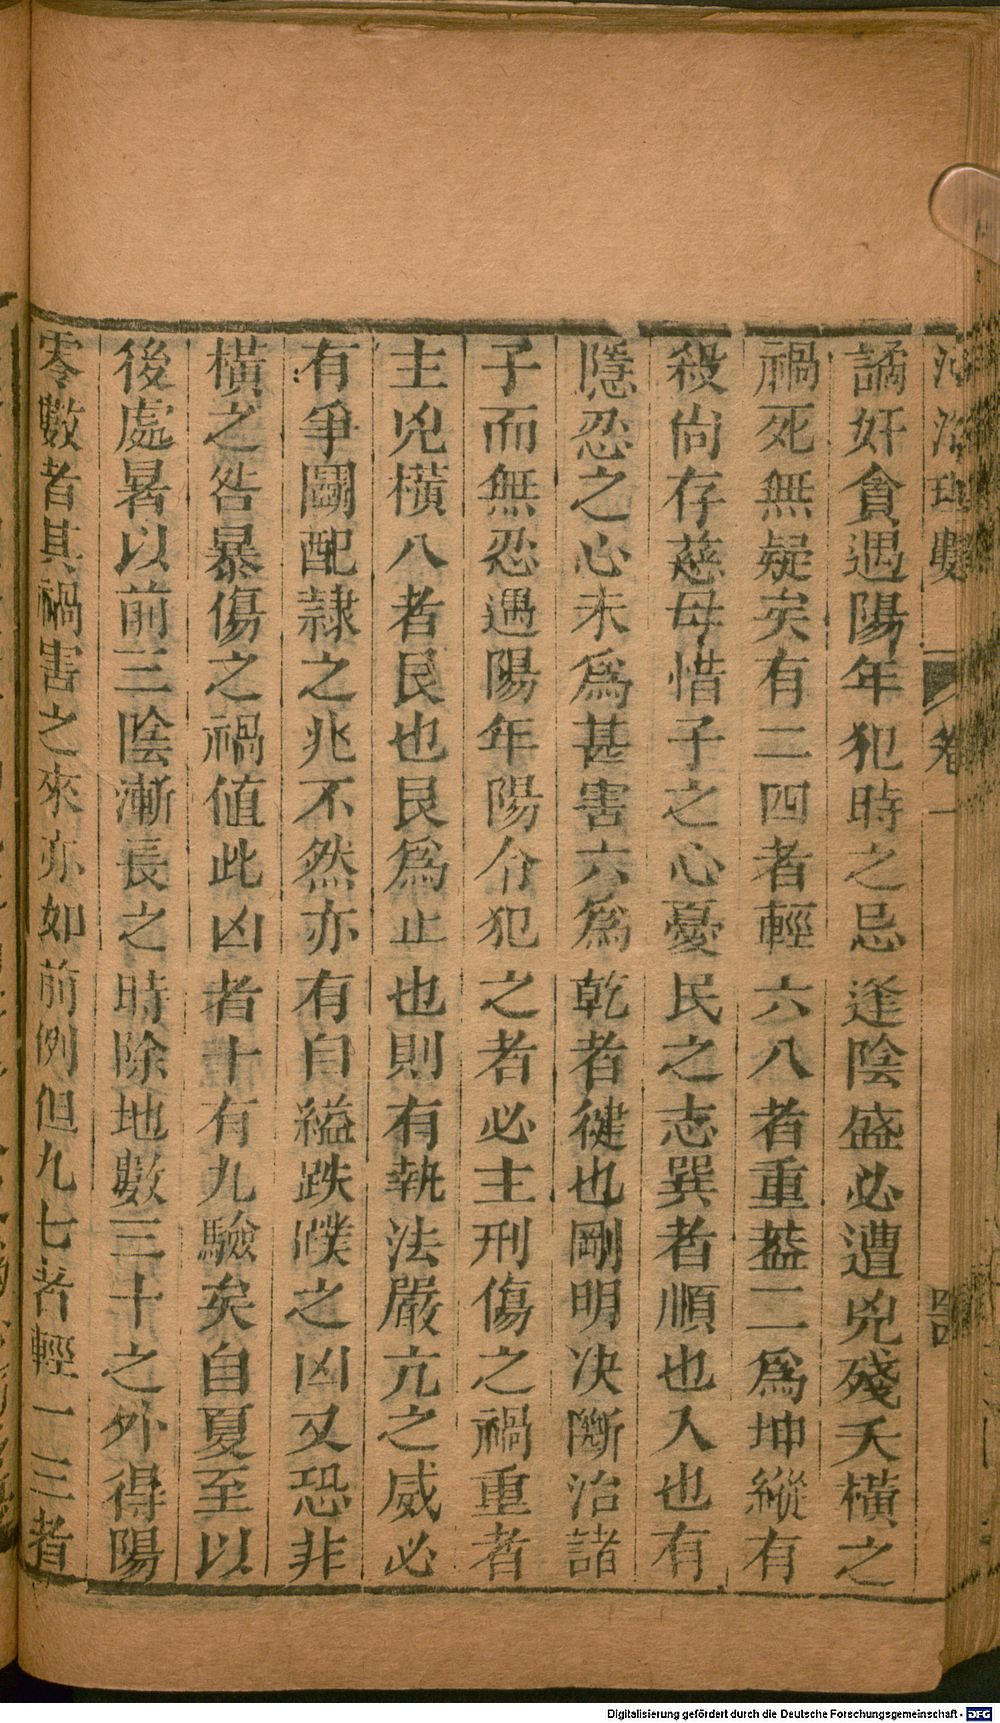 河洛理數 卷一 四
譎奸貪遇陽年犯時之忌逢陰盛必遭兇殘夭橫之
禍死無疑矣有二四者輕六八者重葢二爲坤縱有
殺尙存慈母惜子之心憂民之志巽者順也入也有
隱忍之心未爲甚害六爲乾者健也剛明决斷治諸
子而無忍遇陽年陽令犯之者必主刑傷之禍重者
主兇橫八者艮也艮爲止也則有執法嚴亢之威必
有爭鬭配隷之兆不然亦有自縊跌撲之凶又恐非
橫之咎暴傷之禍値此凶者十有九驗矣自夏至以
後處暑以前三陰漸長之時除地數三十之外得陽
零數者其禍害之來亦如前例但九七者輕一三者
Digitalisierung gefördert durch die Deutsche Forschungsgemeinschaft - DFG